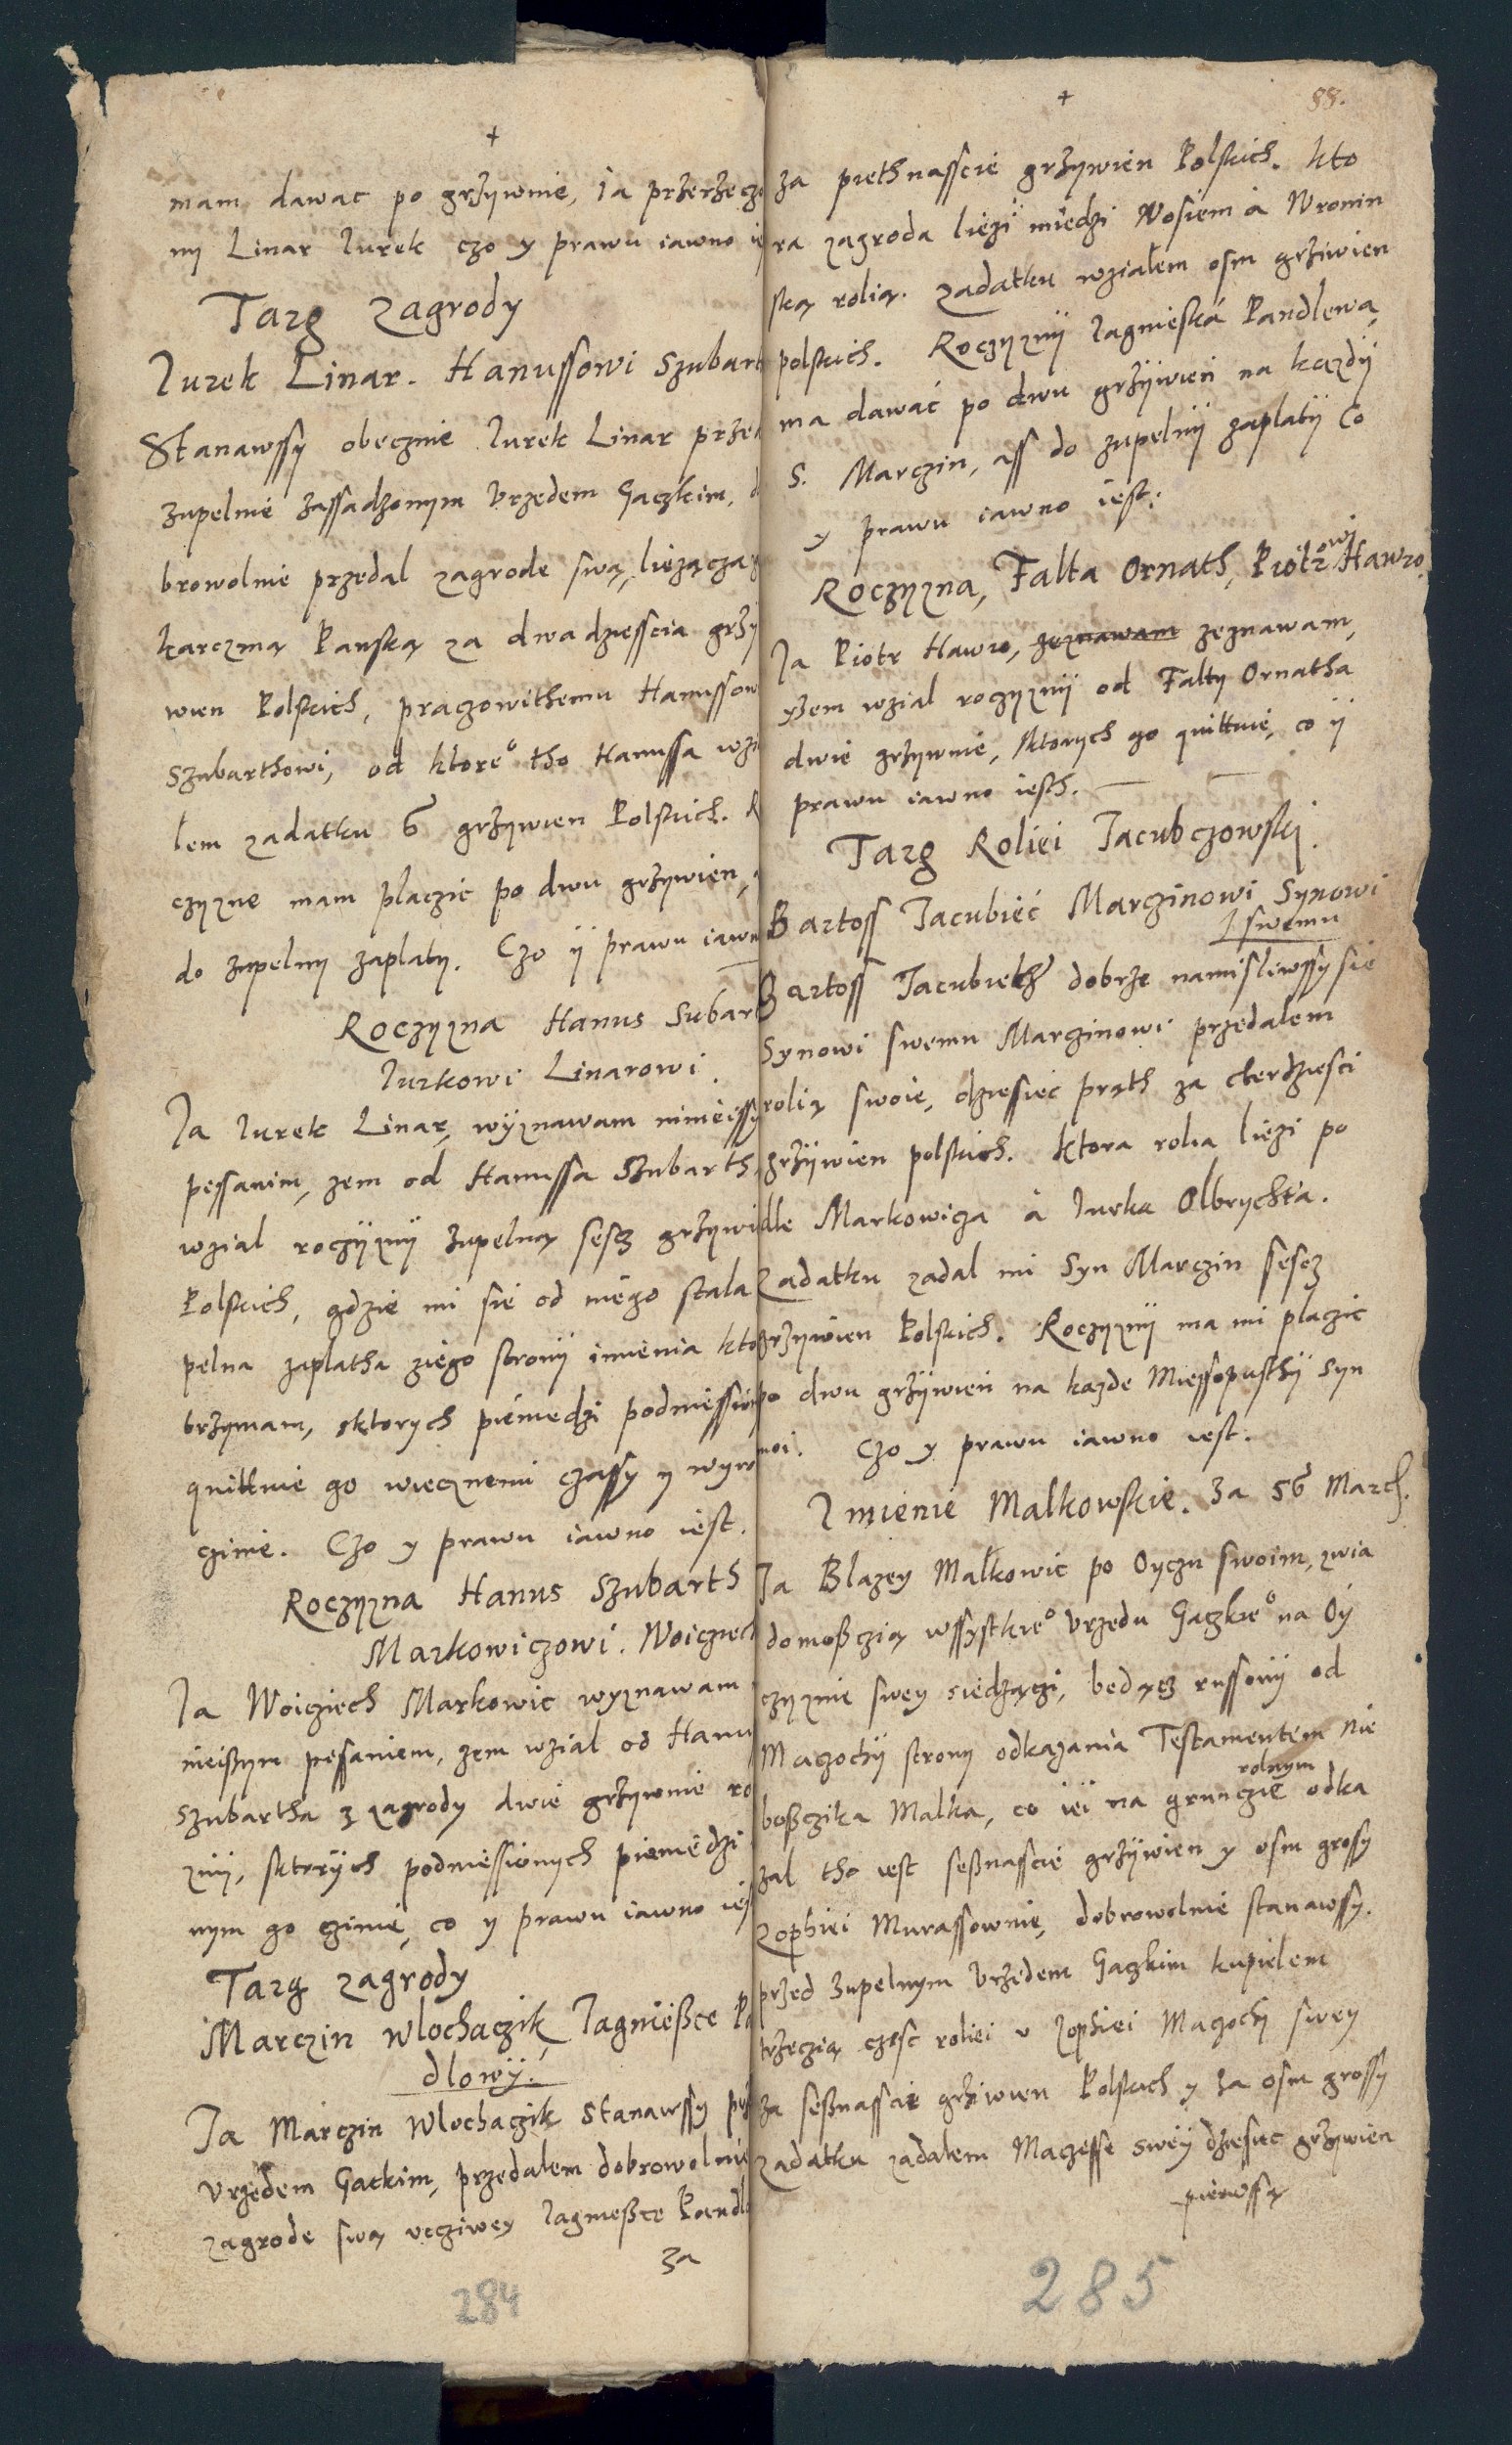 +
mam dawac po grżywnie, ia przerżecżo
ny Linar Jurek czo y prawu iawno ie
Targ zagrody
Jurek Linar. Hanussowi Szubart
Stanawssy obecznie Jurek Linar przed
zupelnie zassadzonym Vrzedem Gaczkim, d
browolnie przedal zagrode swą, lieżącza
karczmą Panską za dwadziesscia grży
wien Polskich, praczowithemu Hanussow
Szubarthowi, od ktore° tho Hanussa wzi
lem zadatku 6 grżywien Polskich. R
czyzne mam placzic po dwu grżywien,
do zupelny zaplaty. Czo ÿ prawu iawn
Roczyzna Hanus Subart
Jurkowi Linarowi.
Ja Jurek Linar, wyznawam ninieissy
pessanim, zem od Hanussa Szubarth
wzial roczÿznÿ zupelną sescz grżywi
Polskich, gdzie mi sie od niego stala
pelna zaplatha ziego stronÿ imienia kto
brżymam, sktorych pieniedzi podniession
quittuie go wiecznemi czassy y wyw
czinie. Czo y prawu iawno iest.
Roczyzna Hanus Szubarth
Markowiczowi. Woiciech
Ja Woiciech Markowic wyznawam
nieißym pessaniem, zem wzial od Hanu
Szubartha z zagrody dwie grżywnie ro
znÿ, sktorÿch podniessionych pieniedzi
nym go czinie, co y prawu iawno ies
Targ zagrody
Marczin Wlochaczik Jagnießce Pa
dlowÿ.
Ja Marczin Wlochaczik stanawssy
Vrzedem Gackim, przedalem dobrowolnie
zagrode swą vcziwey Jagnießce Pandl
za
284
+
88.
za piethnasscie grżywien Polskich. kto
ra zagroda lieżi miedzi Wosiem a Wronin
ską rolią. zadatku wzialem osm grżiwien
polskich. Roczyznÿ Jagnieska Pandlewa
ma dawać po dwu grżÿwień na każdÿ
S. Marczin, ass do zupelnÿ zaplatÿ Co
y prawu iawno iest.
Roczyzna, Falta Ornath, Piotrowi Hawro.
Ja Piotr Hawro, zeznawam zeznawam,
yżem wzial roczyznÿ od Falty Ornatha
dwie grżywnie, Ktorych go quittuie, co ÿ
prawu iawno iesth.
Targ Roliei Jacubczowski.
Bartoss Jacubieć Marczinowi Synowi
swemu
Bartoss Jacubietz dobrze namisliwssy sie
Synowi swemu Marczinowi przedalem
rolią swoie, dziesiec prąth za cterdziesci
grżÿwien polskich. ktora rolia lieżi po
dle Markowicza a Jurka Olbrychta.
Zadatku zadal mi Syn Marczin sescz
grżywien Polskich. Roczyznÿ ma mi placzic
po dwu grżÿwień na kazde Miessopusthÿ Syn
moi. Czo y prawu iawno iest.
Imienie Malkowskie. za 56 March.
Ja Blazey Malkowic po Oyczu swoim, zwia
domoßczią wssystkie° Vrzedu Gaczkie° na Oÿ
czyznie swey siedzączi, bedącz russonÿ od
Maczochÿ strony odkazania Testamentem nie
boßczika Malka, co iei na grunczie rolnym odka
zal tho iest seßnascie grżÿwien y osm grosy
Zophiei Murassownie, dobrowolnie stanawssy.
przed zupelnym Vrzedem Gaczkim kupielem
trżeczią częsc roliei v Zophiei Maczochy swey
za seßnasscie grżiwien Polskich y za osm grossy
zadatku zadalem Maczesse swey dziesiec grżywien
pierwssą
285